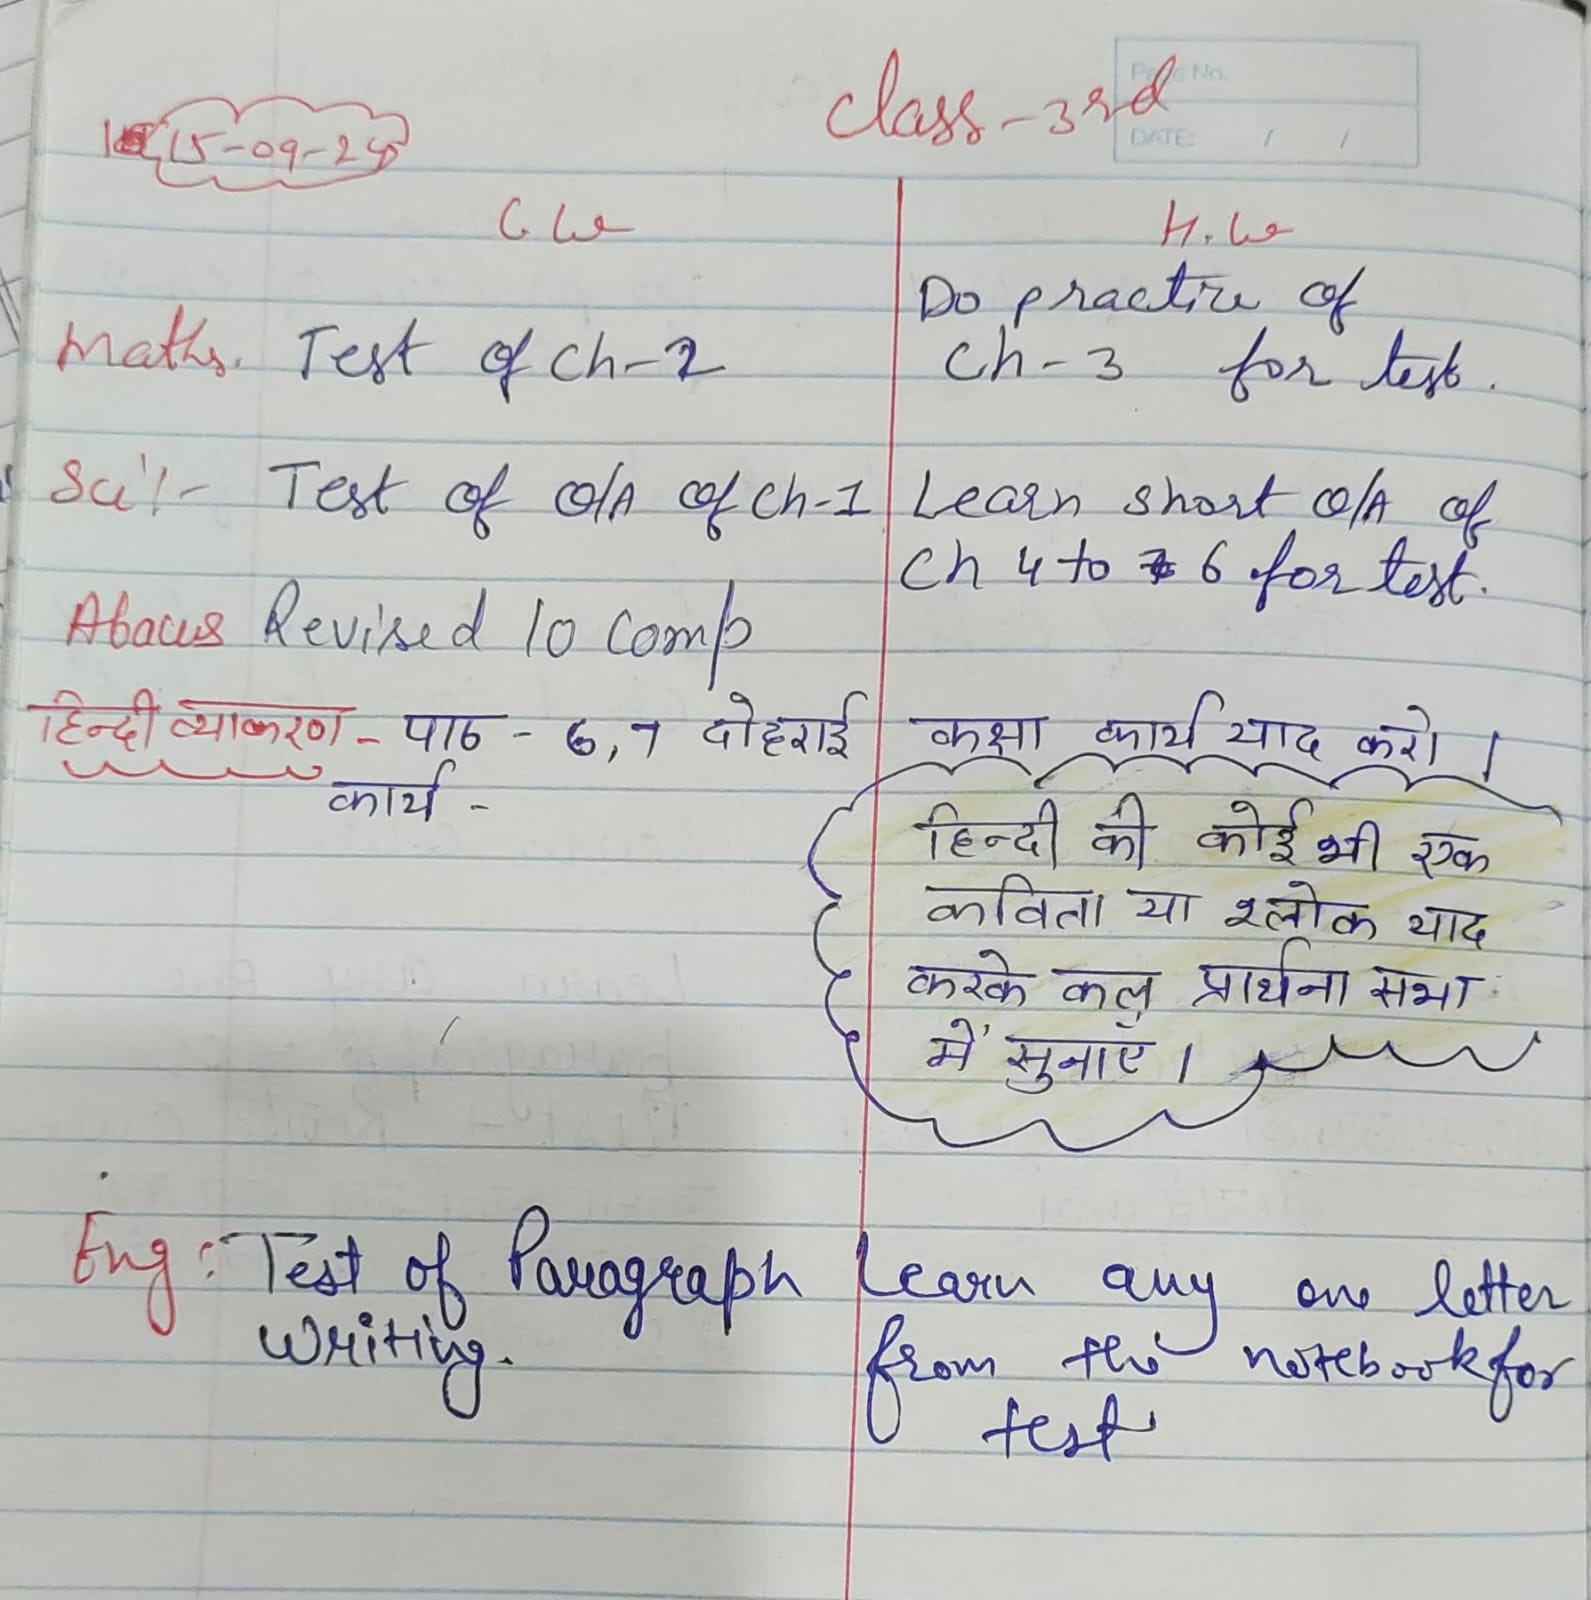 Class-3rd
Page No.
DATE: / /
15-09-25
C.W
H.W
Do practice of
Maths. Test of Ch-2
Ch-3 for test.
Sci:- Test of Q/A of Ch-1
Learn short Q/A of
Ch 4 to 6 for test.
Abacus Revised 10 Comp
हिन्दी व्याकरण - पाठ - 6, 7 दोहराई
कक्षा कार्य याद करो।
कार्य -
हिन्दी की कोई भी एक
कविता या श्लोक याद
करके कल प्रार्थना सभा
में सुनाएं।
Eng: Test of Paragraph
Learn any one letter
Writing.
from the notebook for
test